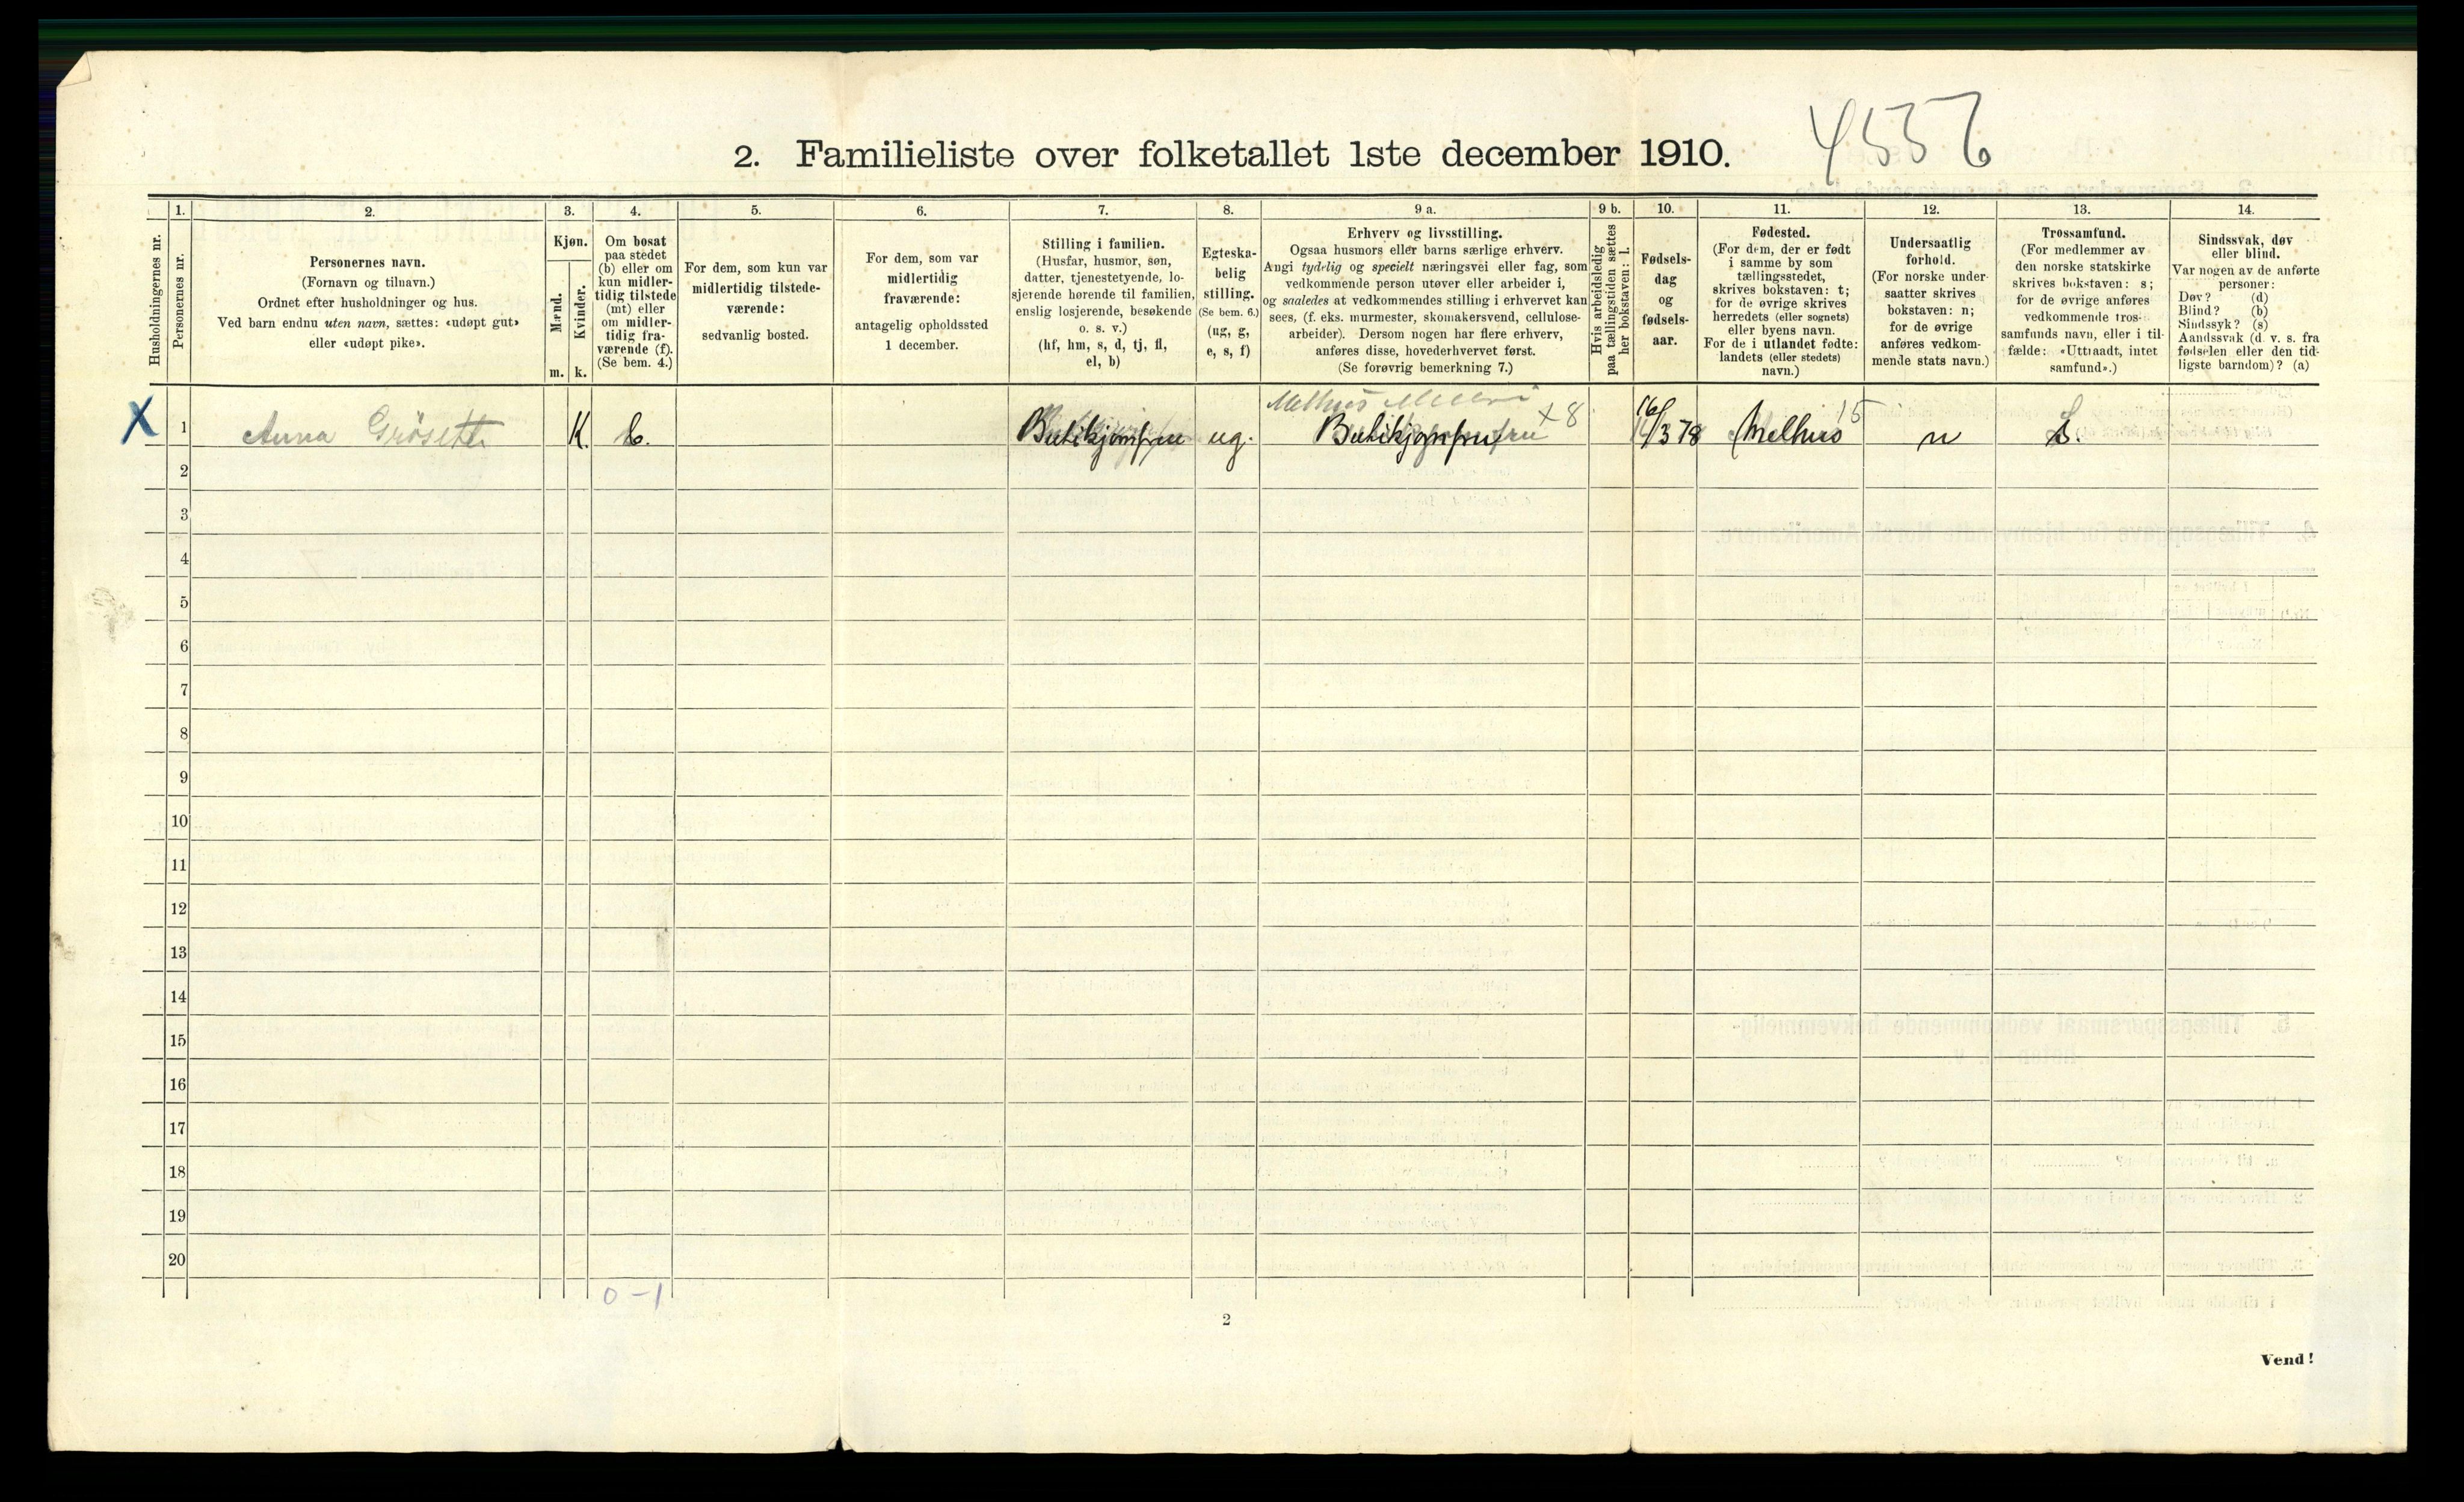 4556
2. Familieliste over folketallet 1ste december 1910.
Husholdningernes nr.
1.
Personernes nr.
2.
Personernes navn.
(Fornavn og tilnavn.)
Ordnet efter husholdninger og hus.
Ved barn endnu uten navn, sættes: «udøpt gut»
eller «udøpt pike».
3.
Kjøn.
Mænd.
Kvinder.
m. k.
4.
Om bosat
paa stedet
(b) eller om
kun midler-
tidig tilstede
(mt) eller
om midler-
tidig fra-
værende (f).
(Se bem. 4.)
5.
For dem, som kun var
midlertidig tilstede-
værende:
sedvanlig bosted.
6.
For dem, som var
midlertidig
fraværende:
antagelig opholdssted
1 december.
7.
Stilling i familien.
(Husfar, husmor, søn,
datter, tjenestetyende, lo-
sjerende hørende til familien,
enslig losjerende, besøkende
o. s. v.)
(hf, hm, s, d, tj, fl,
el, b)
8.
Egteska-
belig
stilling.
(Se bem. 6.)
(ug, g,
e, s, f)
9 a.
Erhverv og livsstilling.
Ogsaa husmors eller barns særlige erhverv.
Angi tydelig og specielt næringsvei eller fag, som
vedkommende person utøver eller arbeider i,
og saaledes at vedkommendes stilling i erhvervet kan
sees, (f. eks. murmester, skomakersvend, cellulose-
arbeider). Dersom nogen har flere erhverv,
anføres disse, hovederhvervet først.
(Se forøvrig bemerkning 7.)
9 b.
Hvis arbeidsledig
paa tællingstiden sættes
her bokstaven: l.
10.
Fødsels-
dag
og
fødsels-
aar.
11.
Fødested.
(For dem, der er født
i samme by som
tællingsstedet,
skrives bokstaven: t;
for de øvrige skrives
herredets (eller sognets)
eller byens navn.
For de i utlandet fødte:
landets (eller stedets)
navn.)
12.
Undersaatlig
forhold.
(For norske under-
saatter skrives
bokstaven: n;
for de øvrige
anføres vedkom-
mende stats navn.)
13.
Trossamfund.
(For medlemmer av
den norske statskirke
skrives bokstaven: s;
for de øvrige anføres
vedkommende tros-
samfunds navn, eller i til-
fælde: «Uttraadt, intet
samfund».)
14.
Sindssvak, døv
eller blind.
Var nogen av de anførte
personer:
Døv? (d)
Blind? (b)
Sindssyk? (s)
Aandssvak (d. v. s. fra
fødselen eller den tid-
ligste barndom)? (a)
Melhus
X 1 Anna Grösett K. b. Butikjomfru ug. Butikjomfru x 8 16/3 78 Melhus 15 n S.
2
3
4
5
6
7
8
9
10
11
12
13
14
15
16
17
18
19
20
0 - 1
2
Vend!